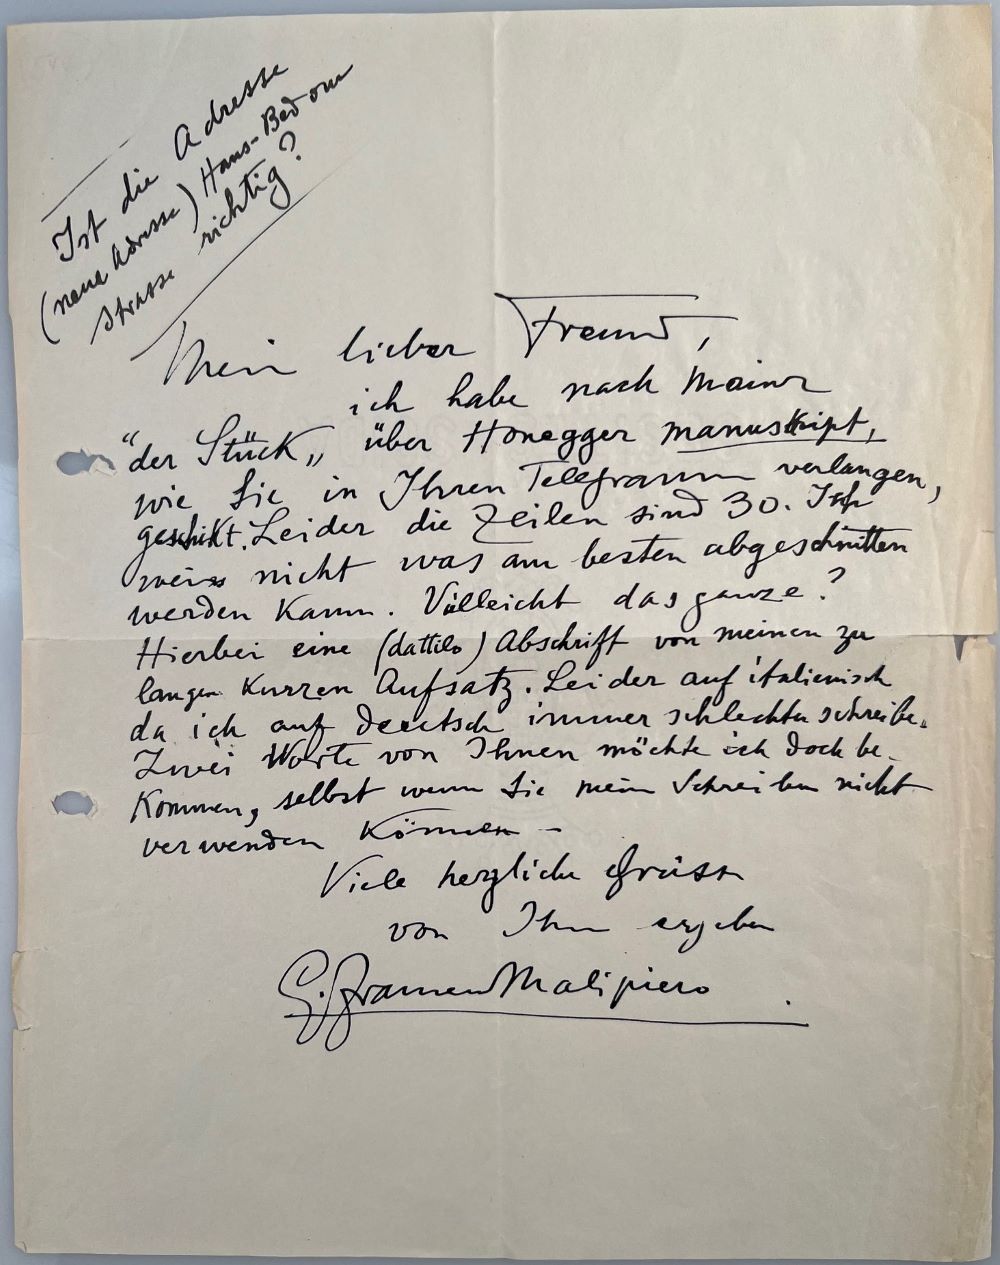 Ist die Adresse
(neue Adresse) Hans-Bedow
Strasse richtig?
Mein lieber Freund,
ich habe nach Mainz
“der Stück„ über Honegger manuskript,
wie Sie in Ihren Telegramm verlangen,
geschikt. Leider die Zeilen sind 30. Ich
weiss nicht was am besten abgeschnitten
werden kann. Villeicht das ganze?
Hierbei eine (dattilo) Abschrift von meinen zu
langen Kurzen Aufsatz. Leider auf italienisch
da ich auf deutsch immer schlechter schreibe.
Zwei Worte von Ihnen möchte ich doch be-
kommen, selbst wenn Sie mein Schreiben nicht
verwenden können –
Viele herzliche Grüsse
von Ihr ergeben
G. Francesco Malipiero